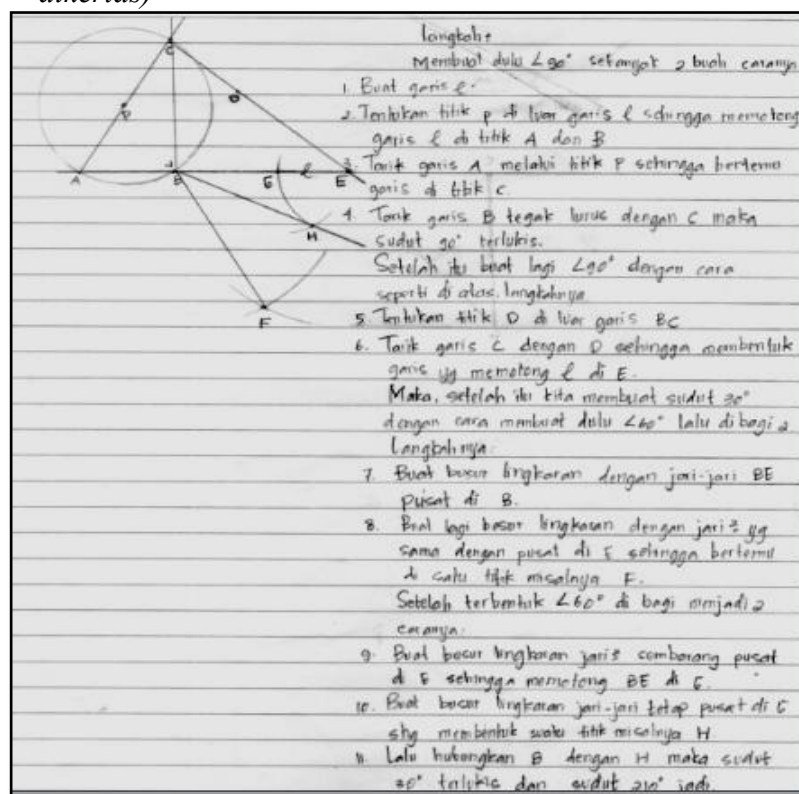 dikertas)
Langkah:
Membuat dulu ∠90° sebanyak 2 buah caranya
1. Buat garis ℓ.
2. Tentukan titik p di luar garis ℓ sehingga memotong
garis ℓ di titik A dan B
3. Tarik garis A melalui titik P sehingga bertemu
garis di titik C.
4. Tarik garis B tegak lurus dengan C maka
sudut 90° terlukis.
Setelah itu buat lagi ∠90° dengan cara
seperti di atas. langkahnya
5. Tentukan titik D di luar garis BC
6. Tarik garis C dengan D sehingga membentuk
garis yg memotong ℓ di E.
Maka, setelah itu kita membuat sudut 30°
dengan cara membuat dulu ∠60° lalu di bagi 2
Langkahnya:
7. Buat busur lingkaran dengan jari-jari BE
pusat di B.
8. Buat lagi busur lingkaran dengan jari² yg
sama dengan pusat di E sehingga bertemu
di satu titik misalnya F.
Setelah terbentuk ∠60° di bagi menjadi 2
caranya:
9. Buat busur lingkaran jari² sembarang pusat
di sehingga memotong BE di
10. Buat busur lingkaran jari-jari tetap pusat di
shg membentuk suatu titik misalnya H
11. Lalu hubungkan B dengan H maka sudut
30° terlukis dan sudut 210° jadi.
C
P
A
B
ℓ
E
H
F